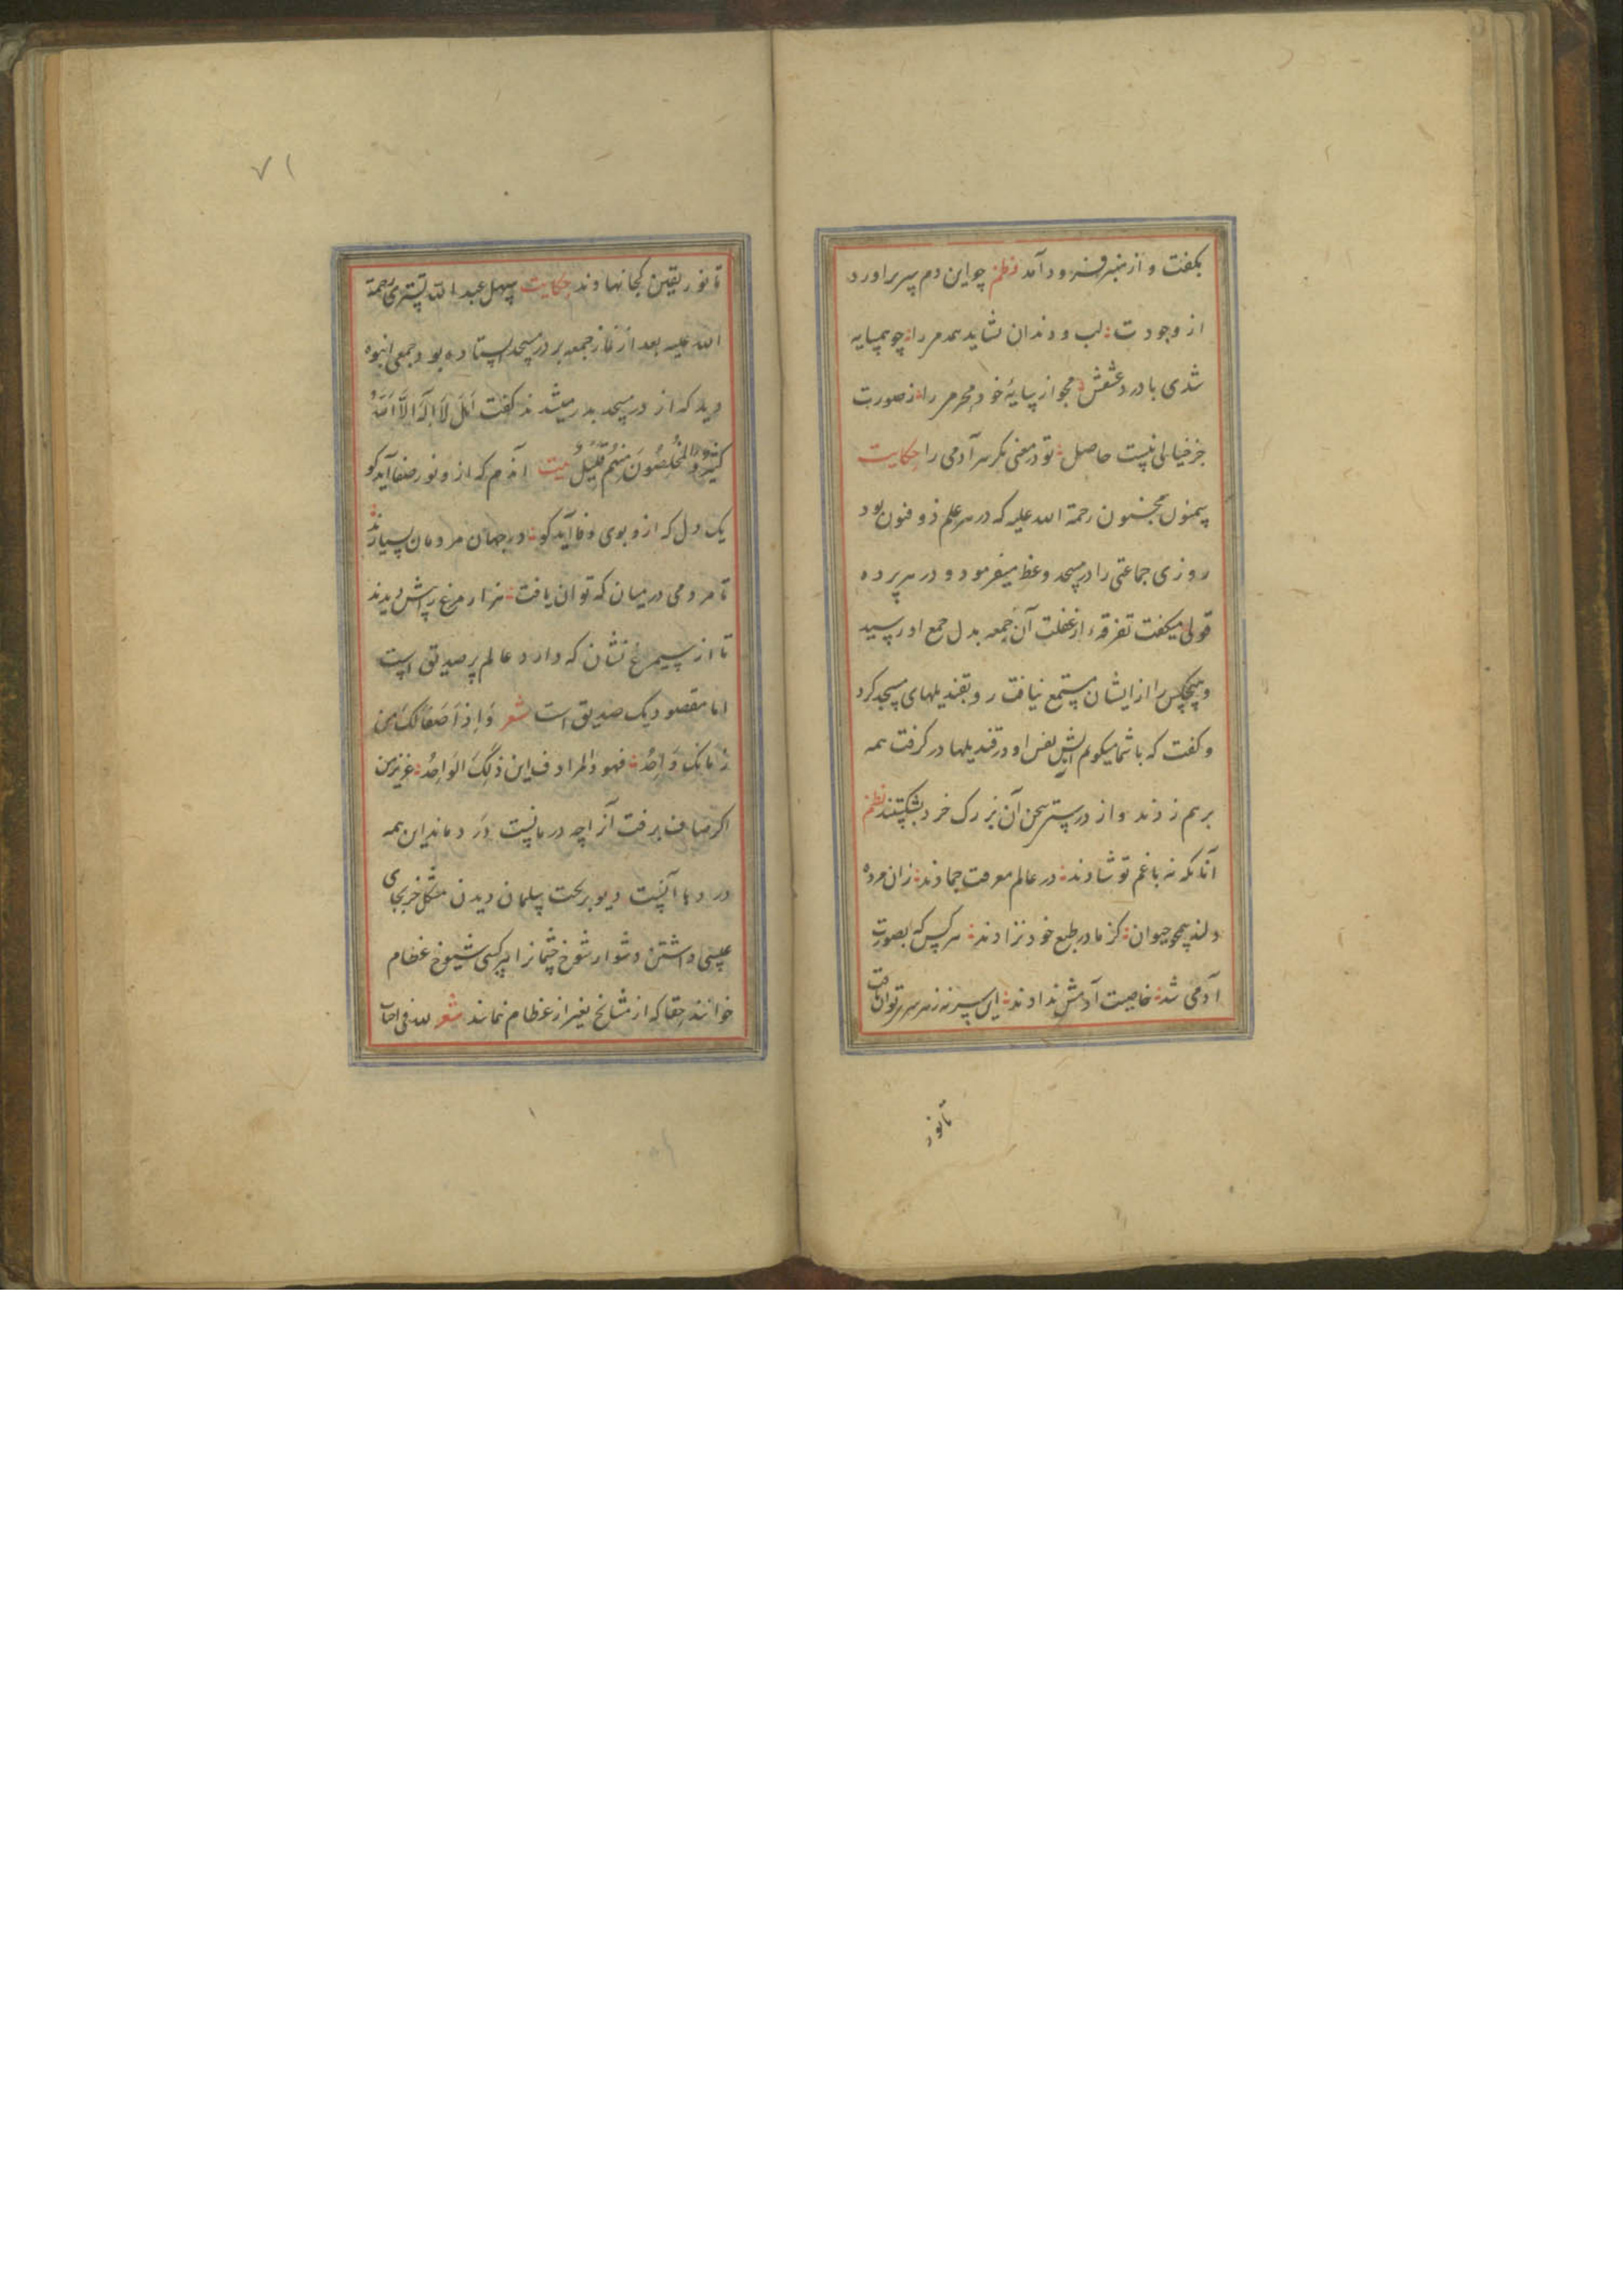 بکفت و از منبر فرود آمد نظم چو این دم سر براورد
از وجودت لب و دندان نشاید همدمی را چو همسایه
شدی با درد عشقش مجو از سایهٔ خود محرمی را ز صورت
جز خیالی نیست حاصل تو در معنی نکر سر آدمی را حکایت
سمنون مجنون رحمة الله علیه که در هر علم ذو فنون بود
روزی جماعتی را در مسجد وعظ میفرمود و در هر پرده
قولی میکفت تفرقهٔ از غفلت آن جمعه بدل جمع او رسید
و هیچکس را از ایشان مستمع نیافت رو بقندیلهای مسجد کرد
و کفت که با شما میکویم آتش نفس او در قندیلها در کرفت همه
برهم زدند و از در سخن آن بزرک خرد بشکستند نظم
آنانکه نه باغم تو شادند در عالم معرفت جمادند زان مرده
دلند همچو حیوان کز مادر طبع خود نزادند هر کس که بصورت
آدمی شد خاصیت آدمش ندادند این سر نه ز هر سر توان یافت
تا نور
۷۱
تا نور یقین کجا نهادند حکایت سهل عبد الله تستری رحمة
الله علیه بعد از نماز جمعه بر در مسجد ایستاده بود جمعی انبوه
دید که از در مسجد بدر میشدند کفت اهل لا اله الا الله
کثیر و المخلصون منهم قلیل بیت آدم که از و نور صفا آید کو
یک دل که ازو بوی وفا آید کو در جهان مردمان بسیارند
تا مردمی در میان که توان یافت هزار مرغ پراش دیدند
تا از سیمرغ نشان که دارد عالم پر صدیق است
اما مقصود یک صدیق است شعر و اذا صفا لک من
زمانک واحد فهو المراد و این ذلک الواحد عزیز من
اکر صاف برفت آنرا چه درمانست درد ماند این همه
دردها آنست دیو بر تخت سلیمان دیدن مشکل خر بجای
عیسی داشتن دشوار شوخ چشمانرا بر کسی شیوخ عظام
خوانند حقا که از مشایخ بغیر از عظام نماند شعر لله فی